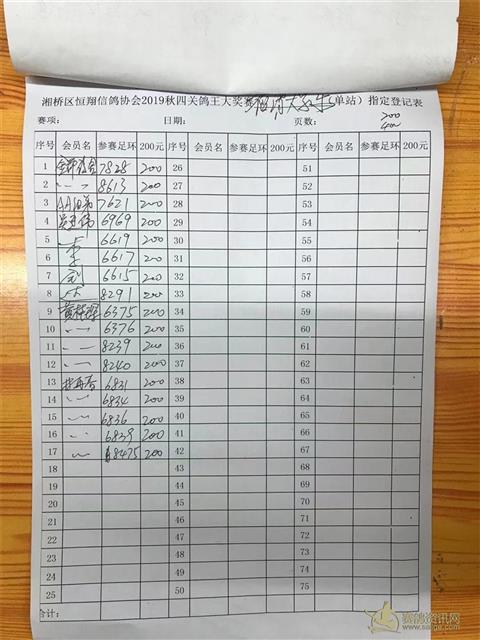 湘桥区恒翔信鸽协会2019秋四关鸽王大奖赛 单站）指定登记表
赛项： 日期： 页数：
200
序号 会员名 参赛足环 200元 序号 会员名 参赛足环 200元 序号 会员名 参赛足环 200元
1 7828 200 26 51
2 8613 200 27 52
3 7621 200 28 53
4 6969 200 29 54
5 6619 200 30 55
6 李 6617 200 31 56
7 刘 6615 200 32 57
8 8291 200 33 58
9 6375 200 34 59
10 6376 200 35 60
11 8239 200 36 61
12 8240 200 37 62
13 6831 200 38 63
14 6834 200 39 64
15 6836 200 40 65
16 6839 200 41 66
17 8475 200 42 67
18 43 68
19 44 69
20 45 70
21 46 71
22 47 72
23 48 73
24 49 74
25 50 75
合计：
赛鸽资讯网
www.saige.com